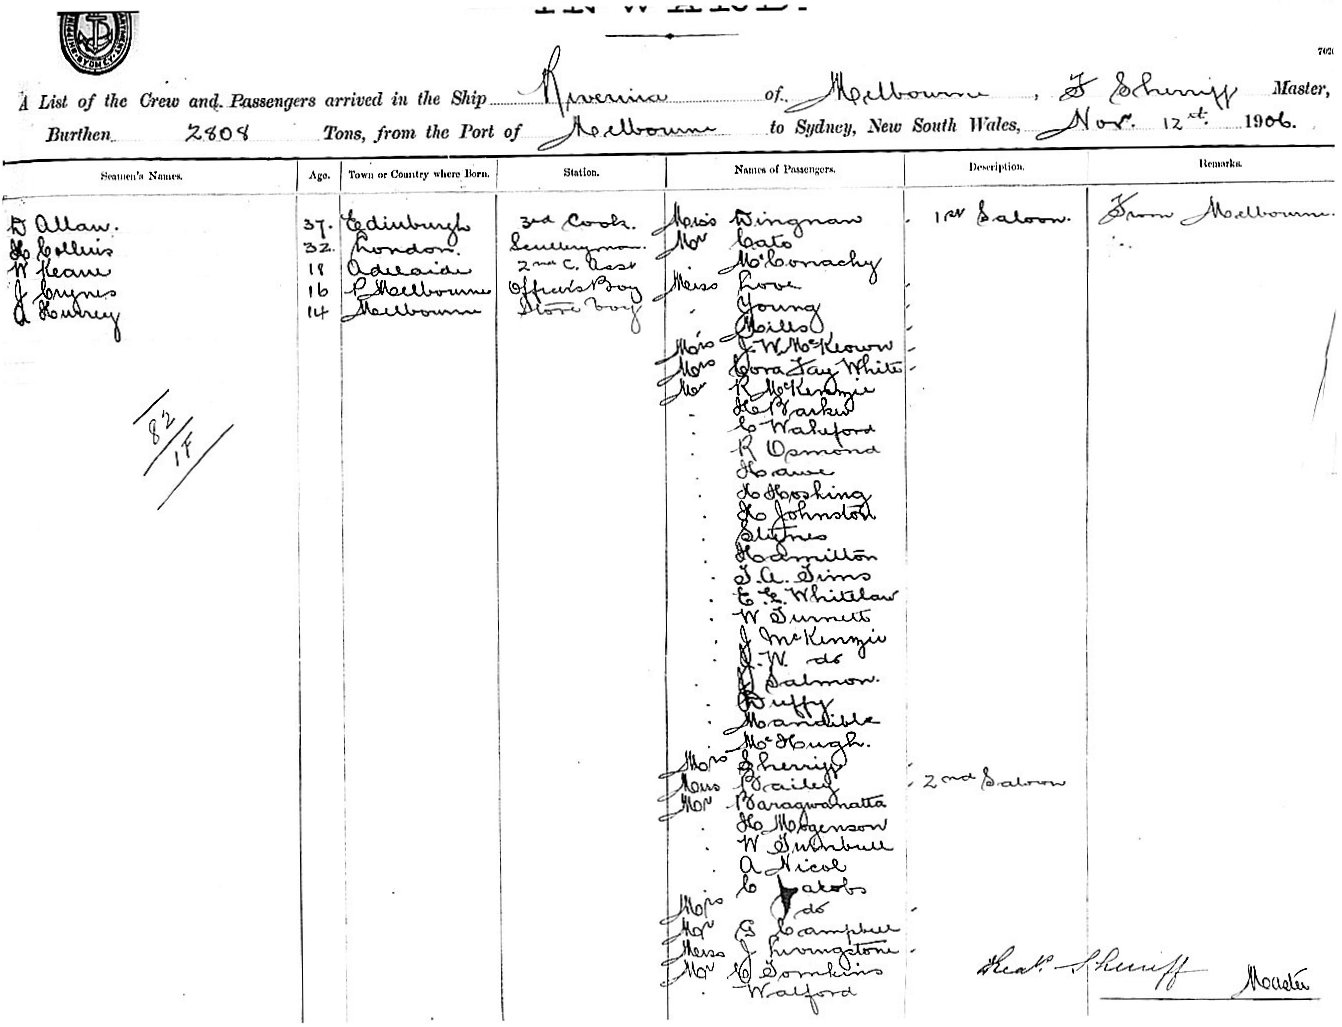 INWARD.
702
A List of the Crew and Passengers arrived in the Ship Riverina of Melbourne, F Sherriff Master,
Burthen 2808 Tons, from the Port of Melbourne to Sydney, New South Wales, Nov. 12th. 1906.
Seamen's Names. Age. Town or Country where Born. Station. Names of Passengers. Description. Remarks.
D Allan. 37. Edinburgh 3rd Cook. Miss Dingnan 1st Saloon. From Melbourne.
H Collins 32. London. Scullery man. Mr Cato
W Keane 18 Adelaide 2nd C. Asst McConachy
J Crynes 16 P Melbourne Officers Boy Miss Love
14 Melbourne Store boy Young
Mills
Mrs J. W. McKeown
Mrs Cora Fay White
Mr R McKenzie
H Barker
C Wakeford
R Osmond
Hawe
H Hosking
H Johnston
Stynes
Hamilton
T. A. Tims
E. E. Whitelaw
W Turnett
J McKenzie
J. W. do
J Salmon.
Duffy
Mandible
McHugh.
Mrs Sherriff
Miss Bailey 2nd Saloon
Mr Baragwanatta
H Mogenson
W Turnbull
A Nicol
C Jacobs
Mrs do
Mr G Campbell
Miss J Livingstone
Mr C Tomkins
Walford
82
1F
Sherriff Master